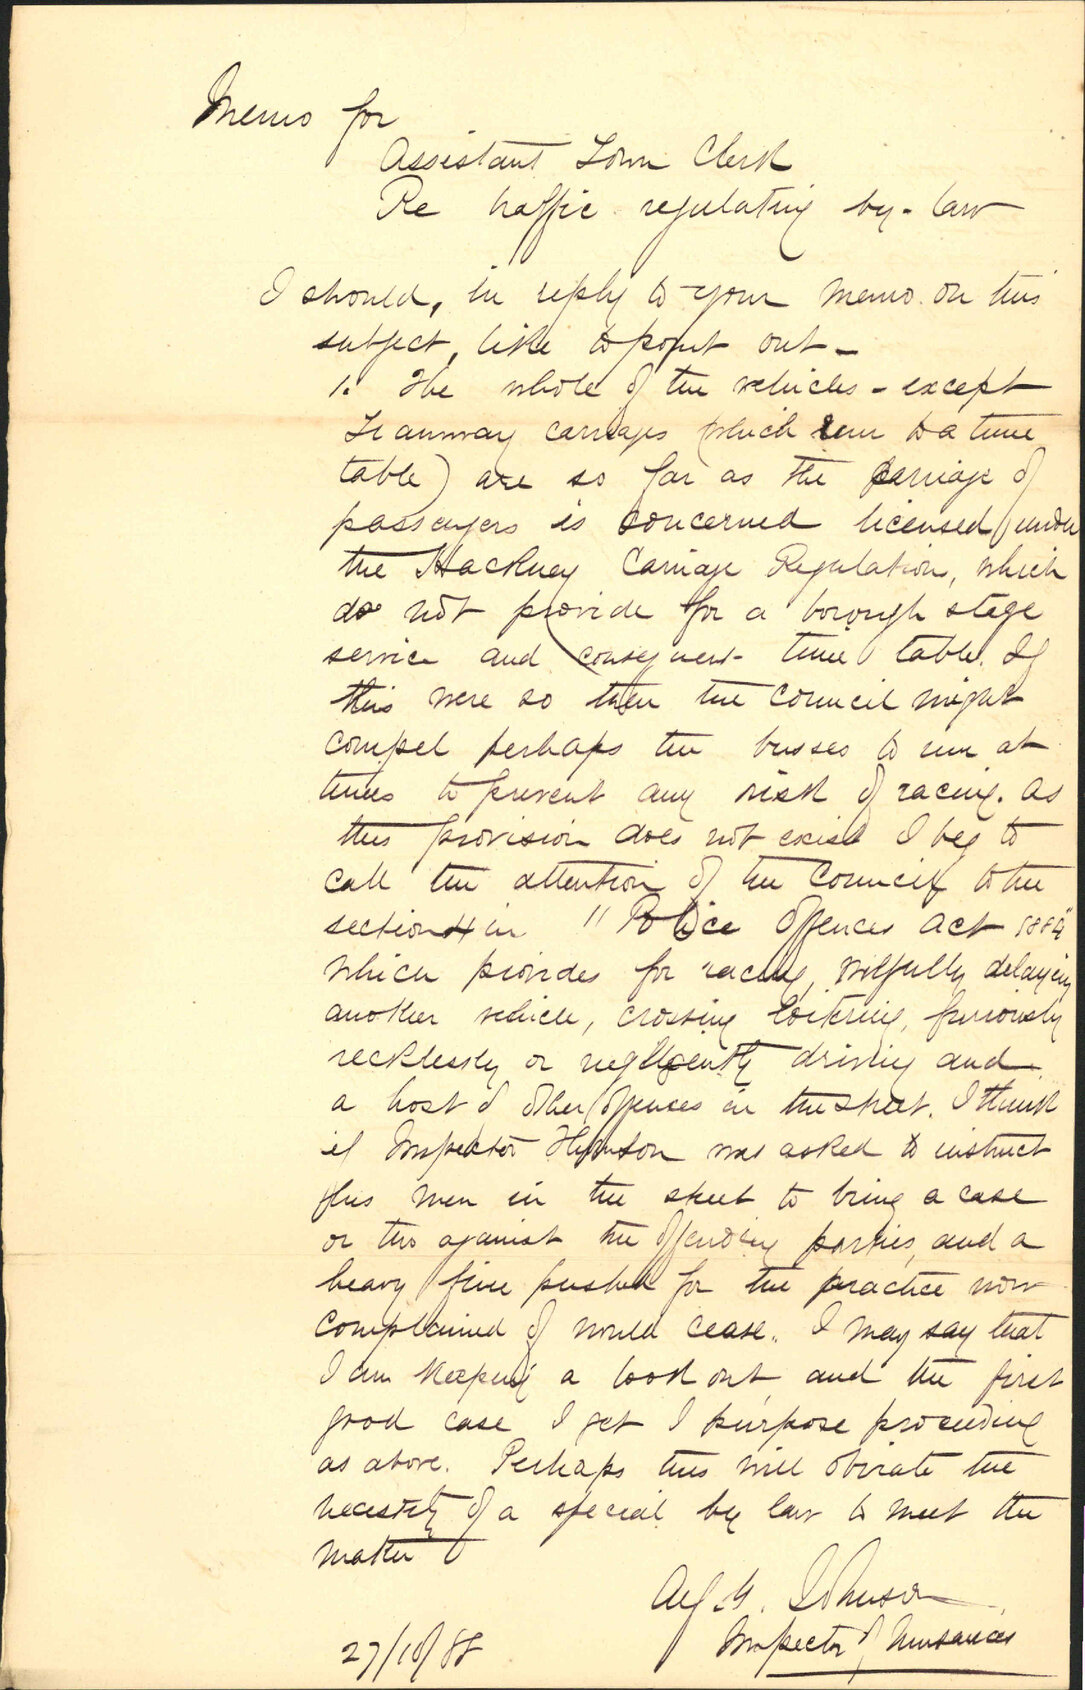 Memo for
Assistant Town Clerk
Re traffic regulating by-law
I should, in reply to your memo on this
subject, like to point out -
1. The whole of the vehicles - except
Tramway carriages (which run to a time
table) are so far as the carriage of
passengers is concerned licensed under
the Hackney Carriage Regulation, which
do not provide for a borough stage
service and consequent time table. If
this were so then the Council might
compel perhaps the busses to run at
times to prevent any risk of racing. As
this provision does not exist I beg to
call the attention of the Council to the
section 4 in "Police Offences Act 1884"
which provides for racing, wilfully delaying
another vehicle, crossing loitering, furiously
recklessly or negligently driving and
a host of other offences in the street. I think
if Inspector was asked to instruct
his men in the street to bring a case
or two against the offending parties, and a
heavy fine pushed for the practice now
complained of would cease. I may say that
I am keeping a look out and the first
good case I get I purpose proceeding
as above. Perhaps this will obviate the
necessity of a special by law to meet the
matter
Johnson
Inspector of Nuisances
27/10/88